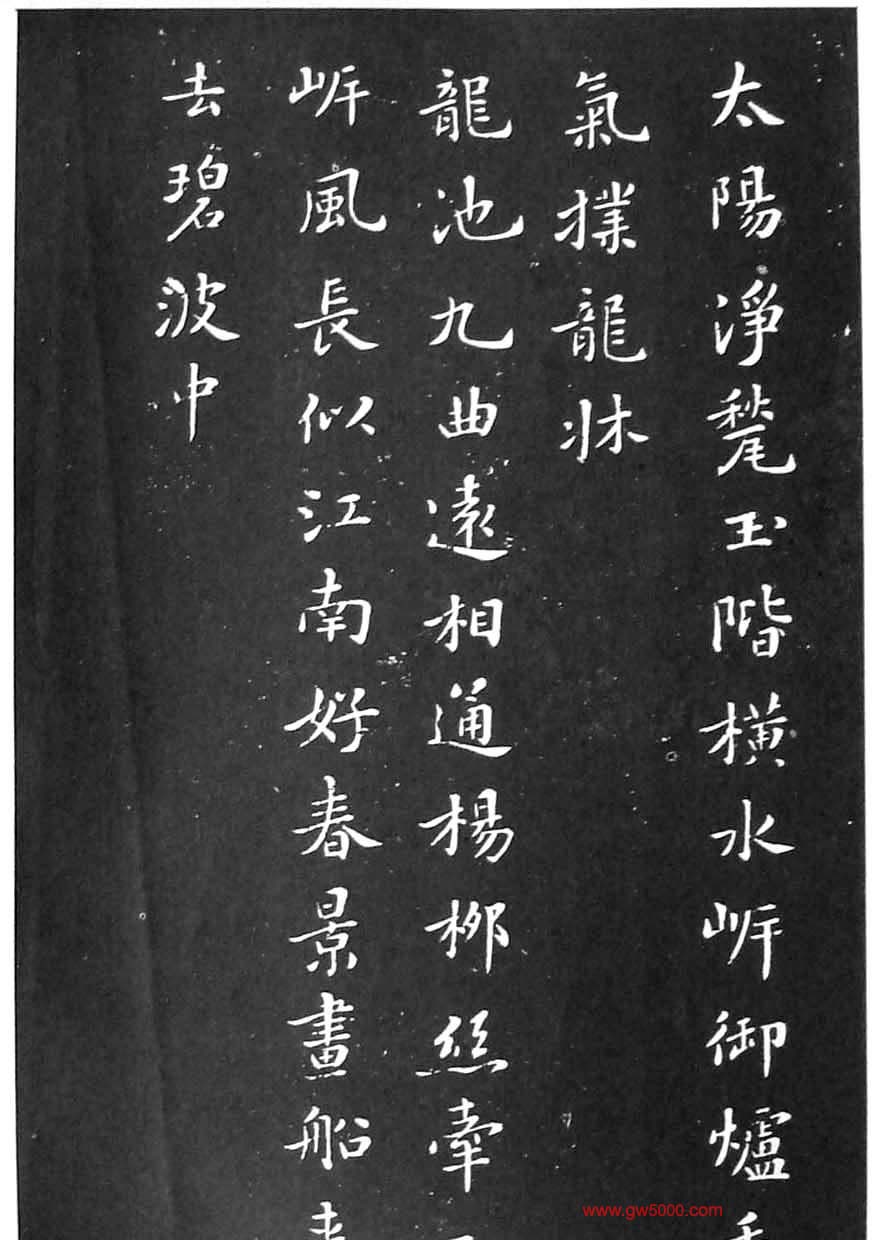 太陽淨甃玉階橫水岸御爐
氣撲龍牀
龍池九曲遠相通楊柳絲牽
岸風長似江南好春景畫船
去碧波中
www.gw5000.com